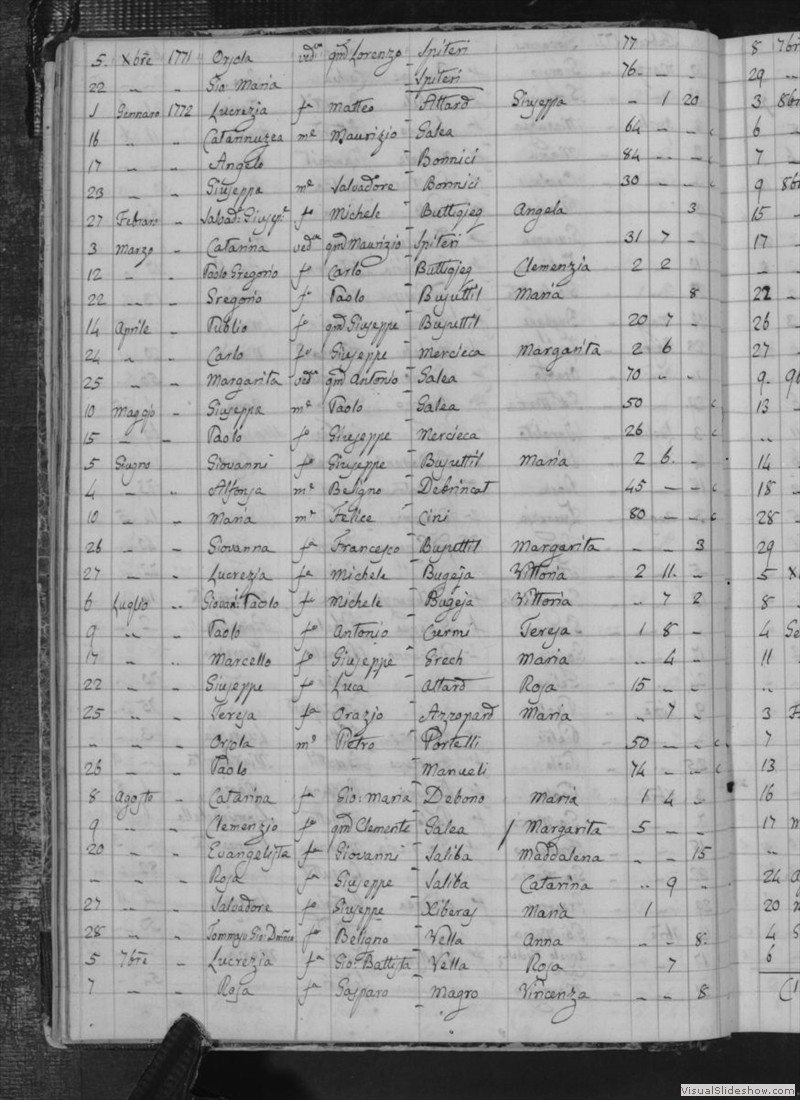 5 Xbre 1771 Orsola ved.a qm Lorenzo Spiteri 77
22 " " Gio Maria Spiteri 76 - -
1 Gennaro 1772 Lucrezia fa Matteo Attard Giuseppa - 1 20
16 " - Catarinuzea me Maurizio Galea 64 - - c
17 " - Angelo Bonnici 84 - - c
23 - - Giuseppa me Salvadore Bonnici 30 - - c
27 Febraro - Sabad: Giusep: fo Michele Buttigieg Angela 3
3 Marzo - Catarina ved.a qm Maurizio Spiteri 31 7 -
12 - - Paolo Gregorio fo Carlo Buttigieg Clemenzia 2 2
22 - - Gregorio fo Paolo Busuttil Maria 8
14 Aprile - Publio fo qm Giuseppe Busuttil 20 7 -
24 " - Carlo fo Giuseppe Mercieca Margarita 2 6
25 " - Margarita ved.a qm Antonio Galea 70 - -
10 Maggio - Giuseppa me Paolo Galea 50 c
15 - - Paolo fo Giuseppe Mercieca 26 c
5 Giugno Giovanni fo Giuseppe Busuttil Maria 2 6 -
4 - " Alfonsa me Beligno Debrincat 45 - - c
10 - Maria me Felice Cini 80 - - c
26 - - Giovanna fa Francesco Busuttil Margarita - - 3
27 - - Lucrezia fa Michele Bugeja Vittoria 2 11 -
6 Luglio " Giovan: Paolo fo Michele Bugeja Vittoria " 7 2
9 " - Paolo fo Antonio Curmi Teresa 1 8 -
17 - " Marcello fo Giuseppe Grech Maria " 4 -
22 - - Giuseppe fo Luca Attard Rosa 15 - -
25 - - Teresa fa Orazio Azzopard Maria - 7 -
" " - Orsola me Pietro Portelli 50 - - c
26 - - Paolo Manueli 74 - - c
8 Agosto - Catarina fa Gio: Maria Debono Maria 1 4 -
9 " - Clemenzio fo qm Clemente Galea / Margarita 5 - -
20 - - Evangelista fa Giovanni Saliba Maddalena - - 15
- - - Rosa fa Giuseppe Saliba Catarina " 9 -
27 - - Salvadore fo Giuseppe Xiberas Maria 1
28 - - Tommaso Gio: fo Beligno Vella Anna - - 8
5 7bre - Lucrezia fa Gio: Battista Vella Rosa 7
7 - Rosa fa Gasparo Magro Vincenza - - 8
8 7bre
29 -
3 8bre
6 -
7 -
9 8bre
15 -
17 -
- -
22 -
26 -
27 -
9
13 -
"
14
18 -
28 -
29
5 X
8 -
4 Ge
11
"
3 F
7
13
16
17 M
"
24 A
20
4
6
VisualSlideshow.com